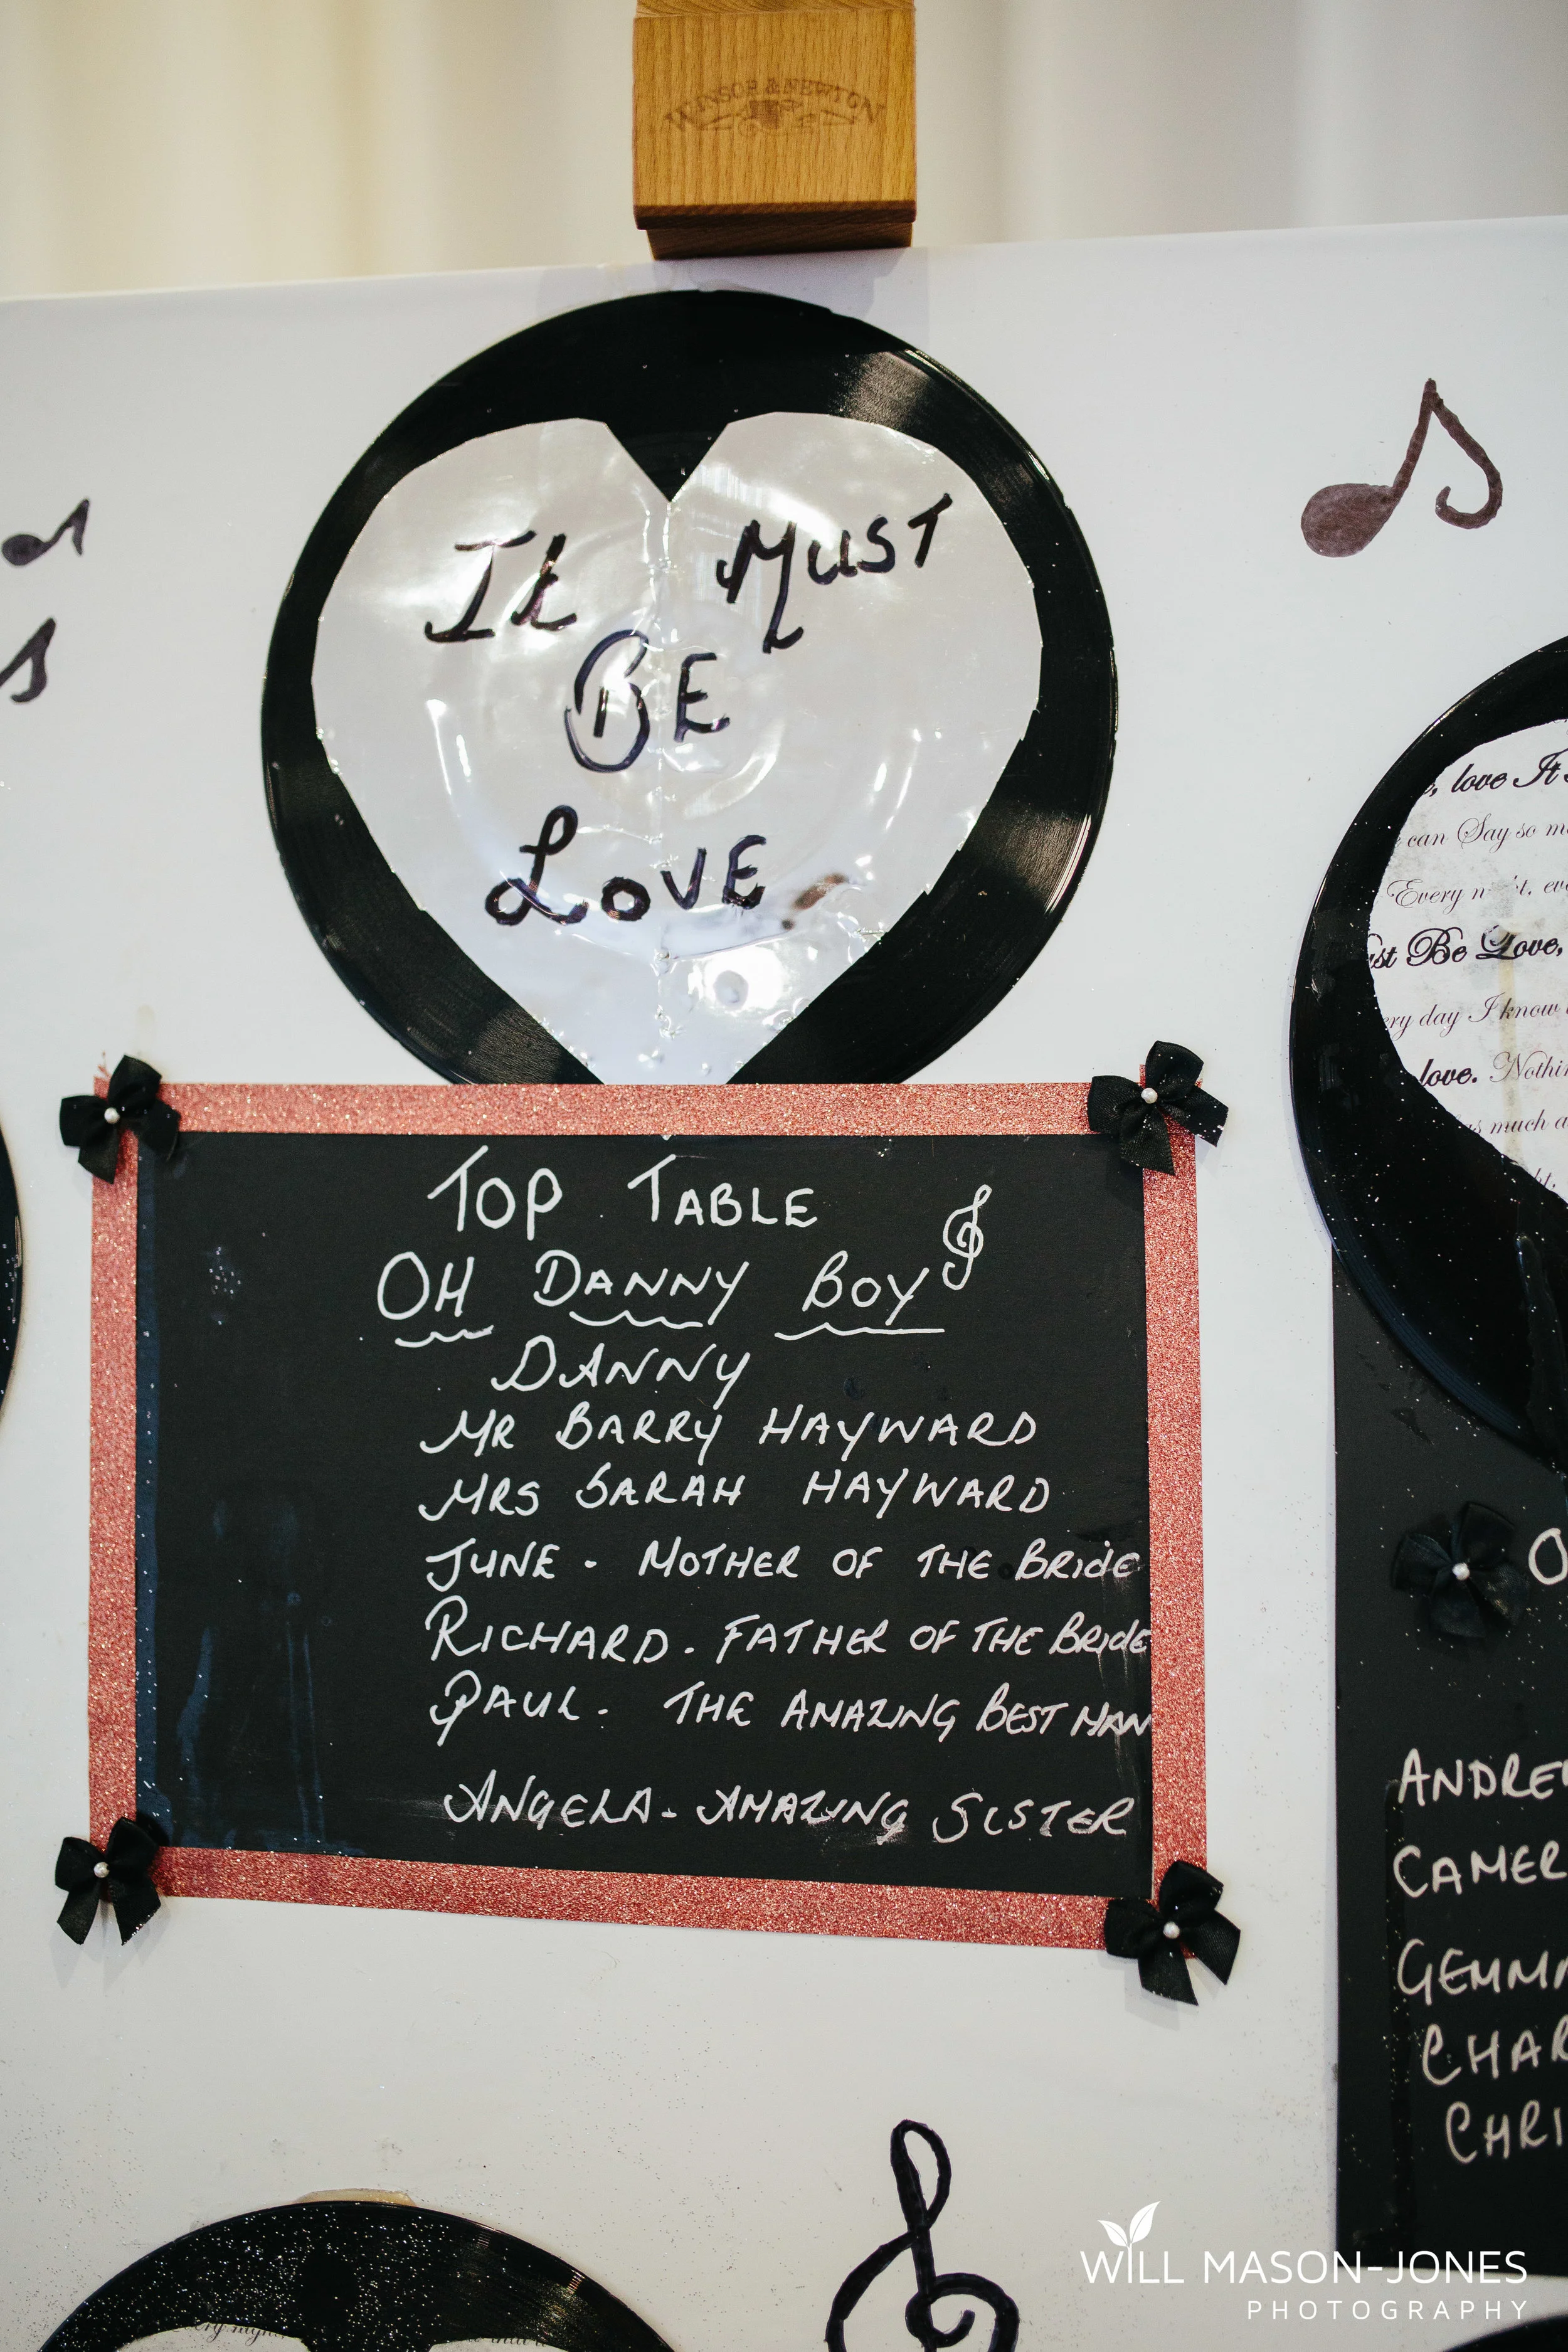 WINSOR & NEWTON
It Must
BE
LOVE
TOP TABLE
OH DANNY BOY
DANNY
MR BARRY HAYWARD
MRS SARAH HAYWARD
JUNE - MOTHER OF THE BRidE
RICHARD - FATHER OF THE BRidE
PAUL - THE AMAZING BEST MAN
ANGELA - AMAZING SISTER
, love It
can Say so m
Every n
st Be Love,
ry day I know
love. Nothin
as much a
O
ANDRE
CAMER
GEMM
CHAR
CHRI
WILL MASON-JONES
PHOTOGRAPHY